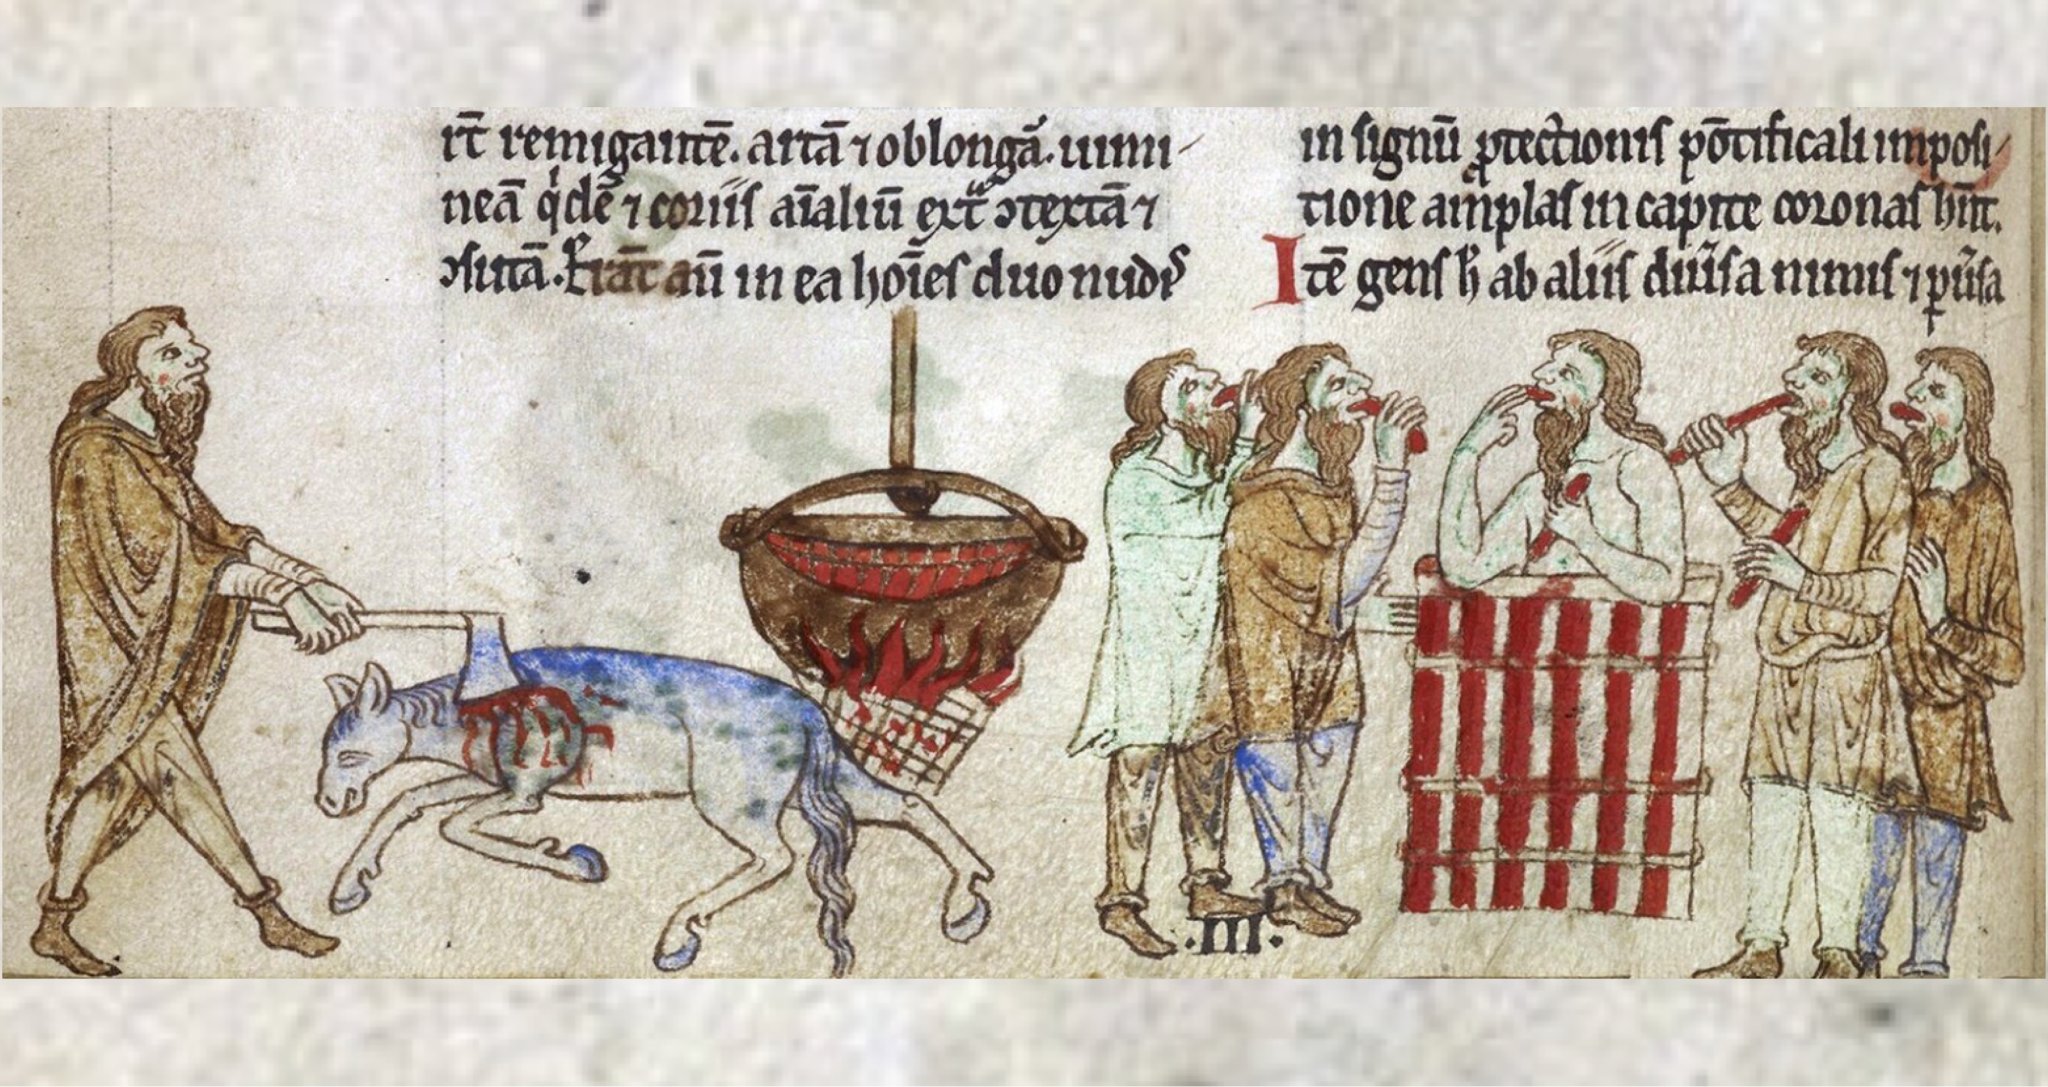 rt̄ remigantē. artā ⁊ oblongā. uimi-
neā qͥdē ⁊ coriis aīaliū ext͛ ɔtextā ⁊
ɔsutā. Erāt aū in ea hoīes duo nudis
in signū ꝓtectionis pōtificali imposi-
tione amplas in capite coronas hn̄t.
Itē gens h̄ ab aliis diuͥsa nimis ⁊ puͥsa
.III.